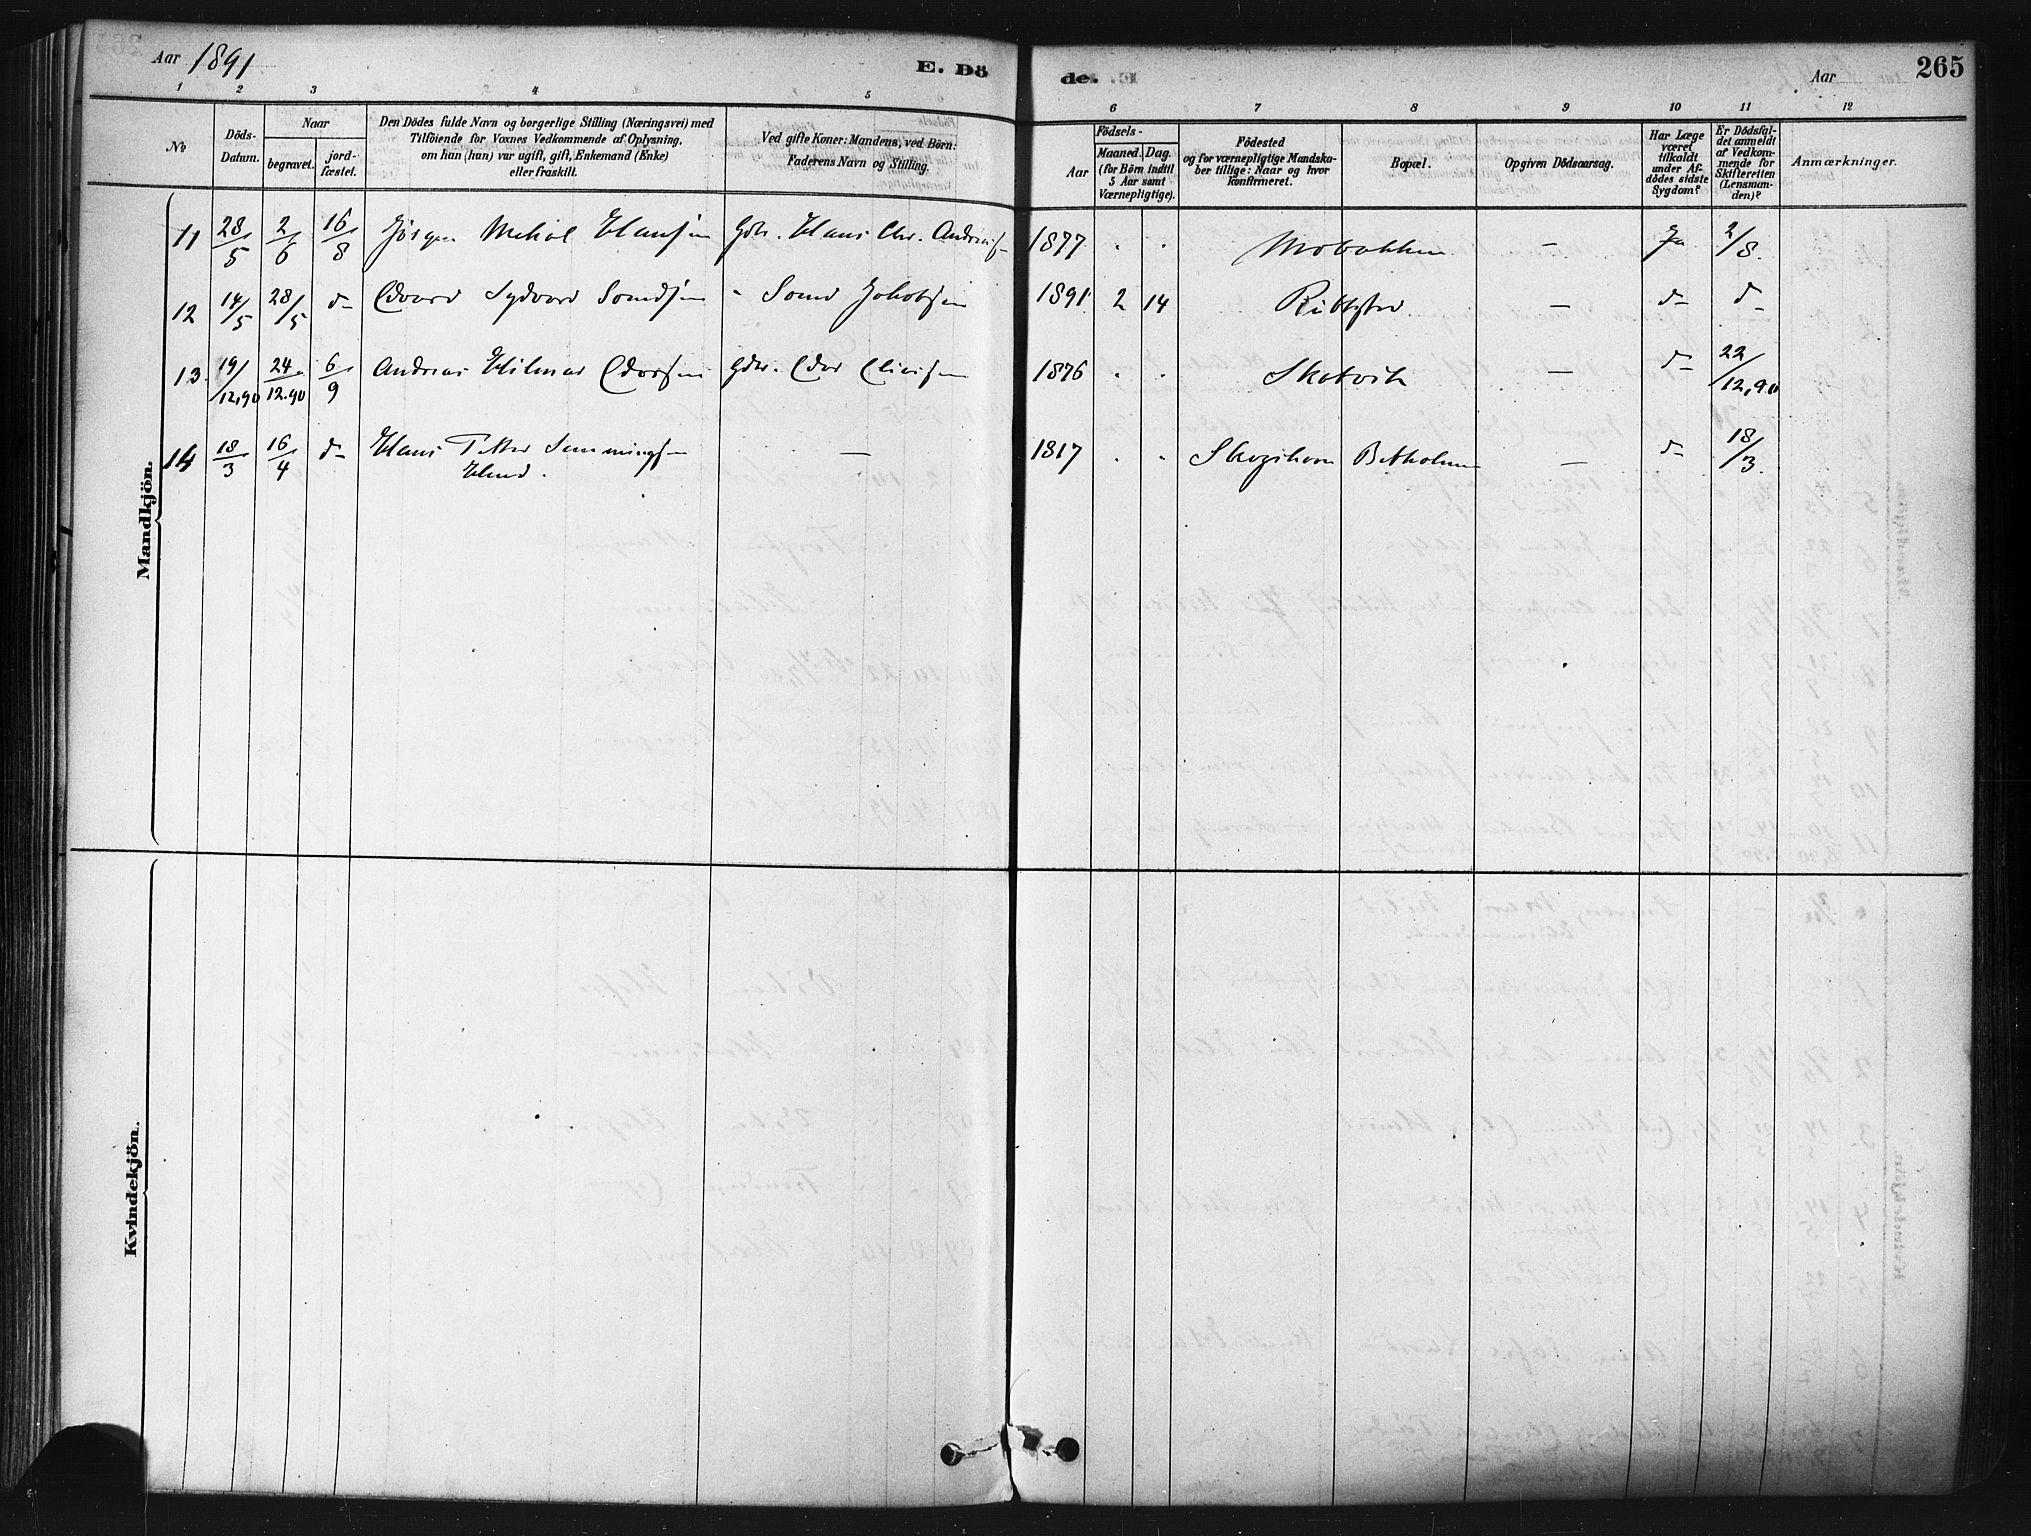 Aar 1891
E. Dö
de.
Aar
265
1 2 3 4 5 6 7 8 9 10 11 12
No
Döds-
Datum.
Naar
begravet.
jord-
fæstet.
Den Dödes fulde Navn og borgerlige Stilling (Næringsvei) med
Tilföiende for Voxnes Vedkommende af Oplysning,
om han (hun) var ugift, gift, Enkemand (Enke)
eller fraskilt.
Ved gifte Koner: Mandens, ved Börn:
Faderens Navn og Stilling.
Födsels-
Aar
Maaned. Dag.
(for Börn indtil
5 Aar samt
Værnepligtige).
Födested
og for værnepligtige Mandska-
ber tillige: Naar og hvor
konfirmeret.
Bopæl.
Opgiven Dödsaarsag.
Har Læge
været
tilkaldt
under Af-
dödes sidste
Sygdom?
Er Dödsfal-
det anmeldt
af Vedkom-
mende for
Skifteretten
(Lensman-
den)?
Anmærkninger.
Mandkjön.
11 28/5 2/6 16/8 Jörgen Mekal Hansen Gdbr. Hans Chr. Andreas 1877 . . Mobakken — Ja 2/8.
12 14/5 28/5 d- Edvard Sydvard 1891 2 14 — d- d-
13. 19/12,90 24/12.90 6/9 Andreas Hilmar Gdbr. 1876 . . Skotvik — d- 22/12,90
14 18/3 16/4 d- Hans Petter Semmingsen — 1817 . . — d- 18/3.
Kvindekjön.